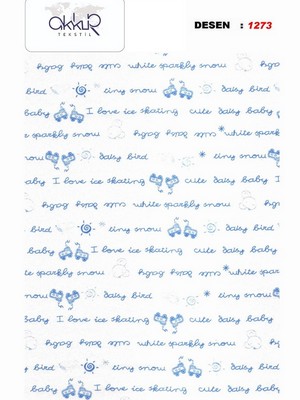 akkur
TEKSTİL
DESEN : 1273
cute daisy baby white sparkly snow
bird tiny snow daisy bird
baby I love ice skating cute daisy baby
e sparkly snow cute daisy baby white spark
snow daisy bird tiny snow
aby I love ice skating cute daisy baby
y snow cute daisy baby white sparkly snow
bird tiny snow daisy bird
baby I love ice skating cute daisy baby
te sparkly snow cute daisy baby white spar
snow daisy bird tiny snow
baby I love ice skating cute daisy baby
snow cute daisy baby white sparkly snow
bird tiny snow daisy bird
baby I love ice skating cute daisy baby